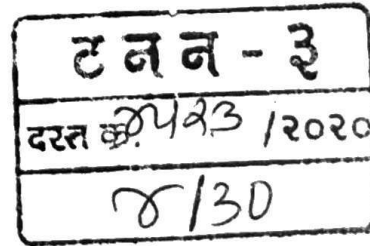 ट न न - ३
दस्त क्र. ४५२३ /२०२०
४/30